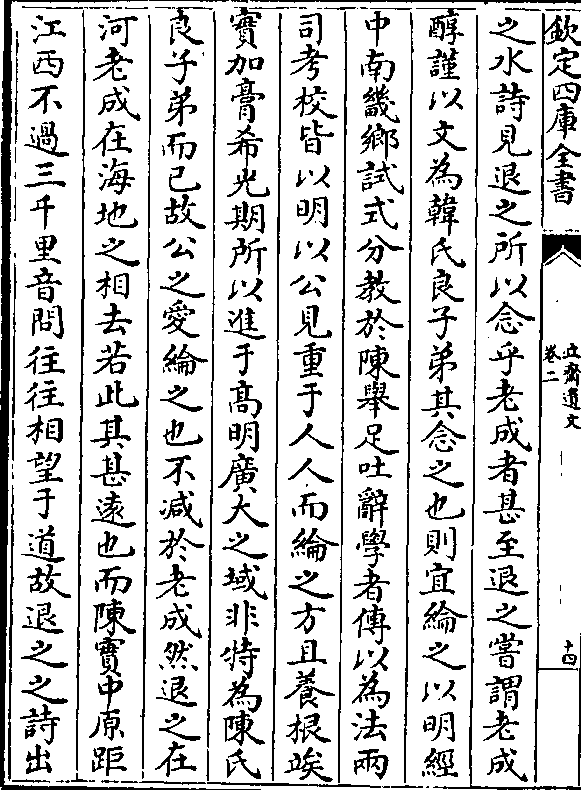 欽定四庫全書
立齋遺文
卷二
十四
之水詩見退之所以念乎老成者甚至退之嘗謂老成
醇謹以文為韓氏良子弟其念之也則宜綸之以明經
中南畿鄉試式分教於陳舉足吐辭學者傳以為法兩
司考校皆以明以公見重于人人而綸之方且養根竢
實加膏希光期所以進于高明廣大之域非特為陳氏
良子弟而已故公之愛綸之也不減於老成然退之在
河老成在海地之相去若此其甚遠也而陳實中原距
江西不過三千里音問往往相望于道故退之之詩出